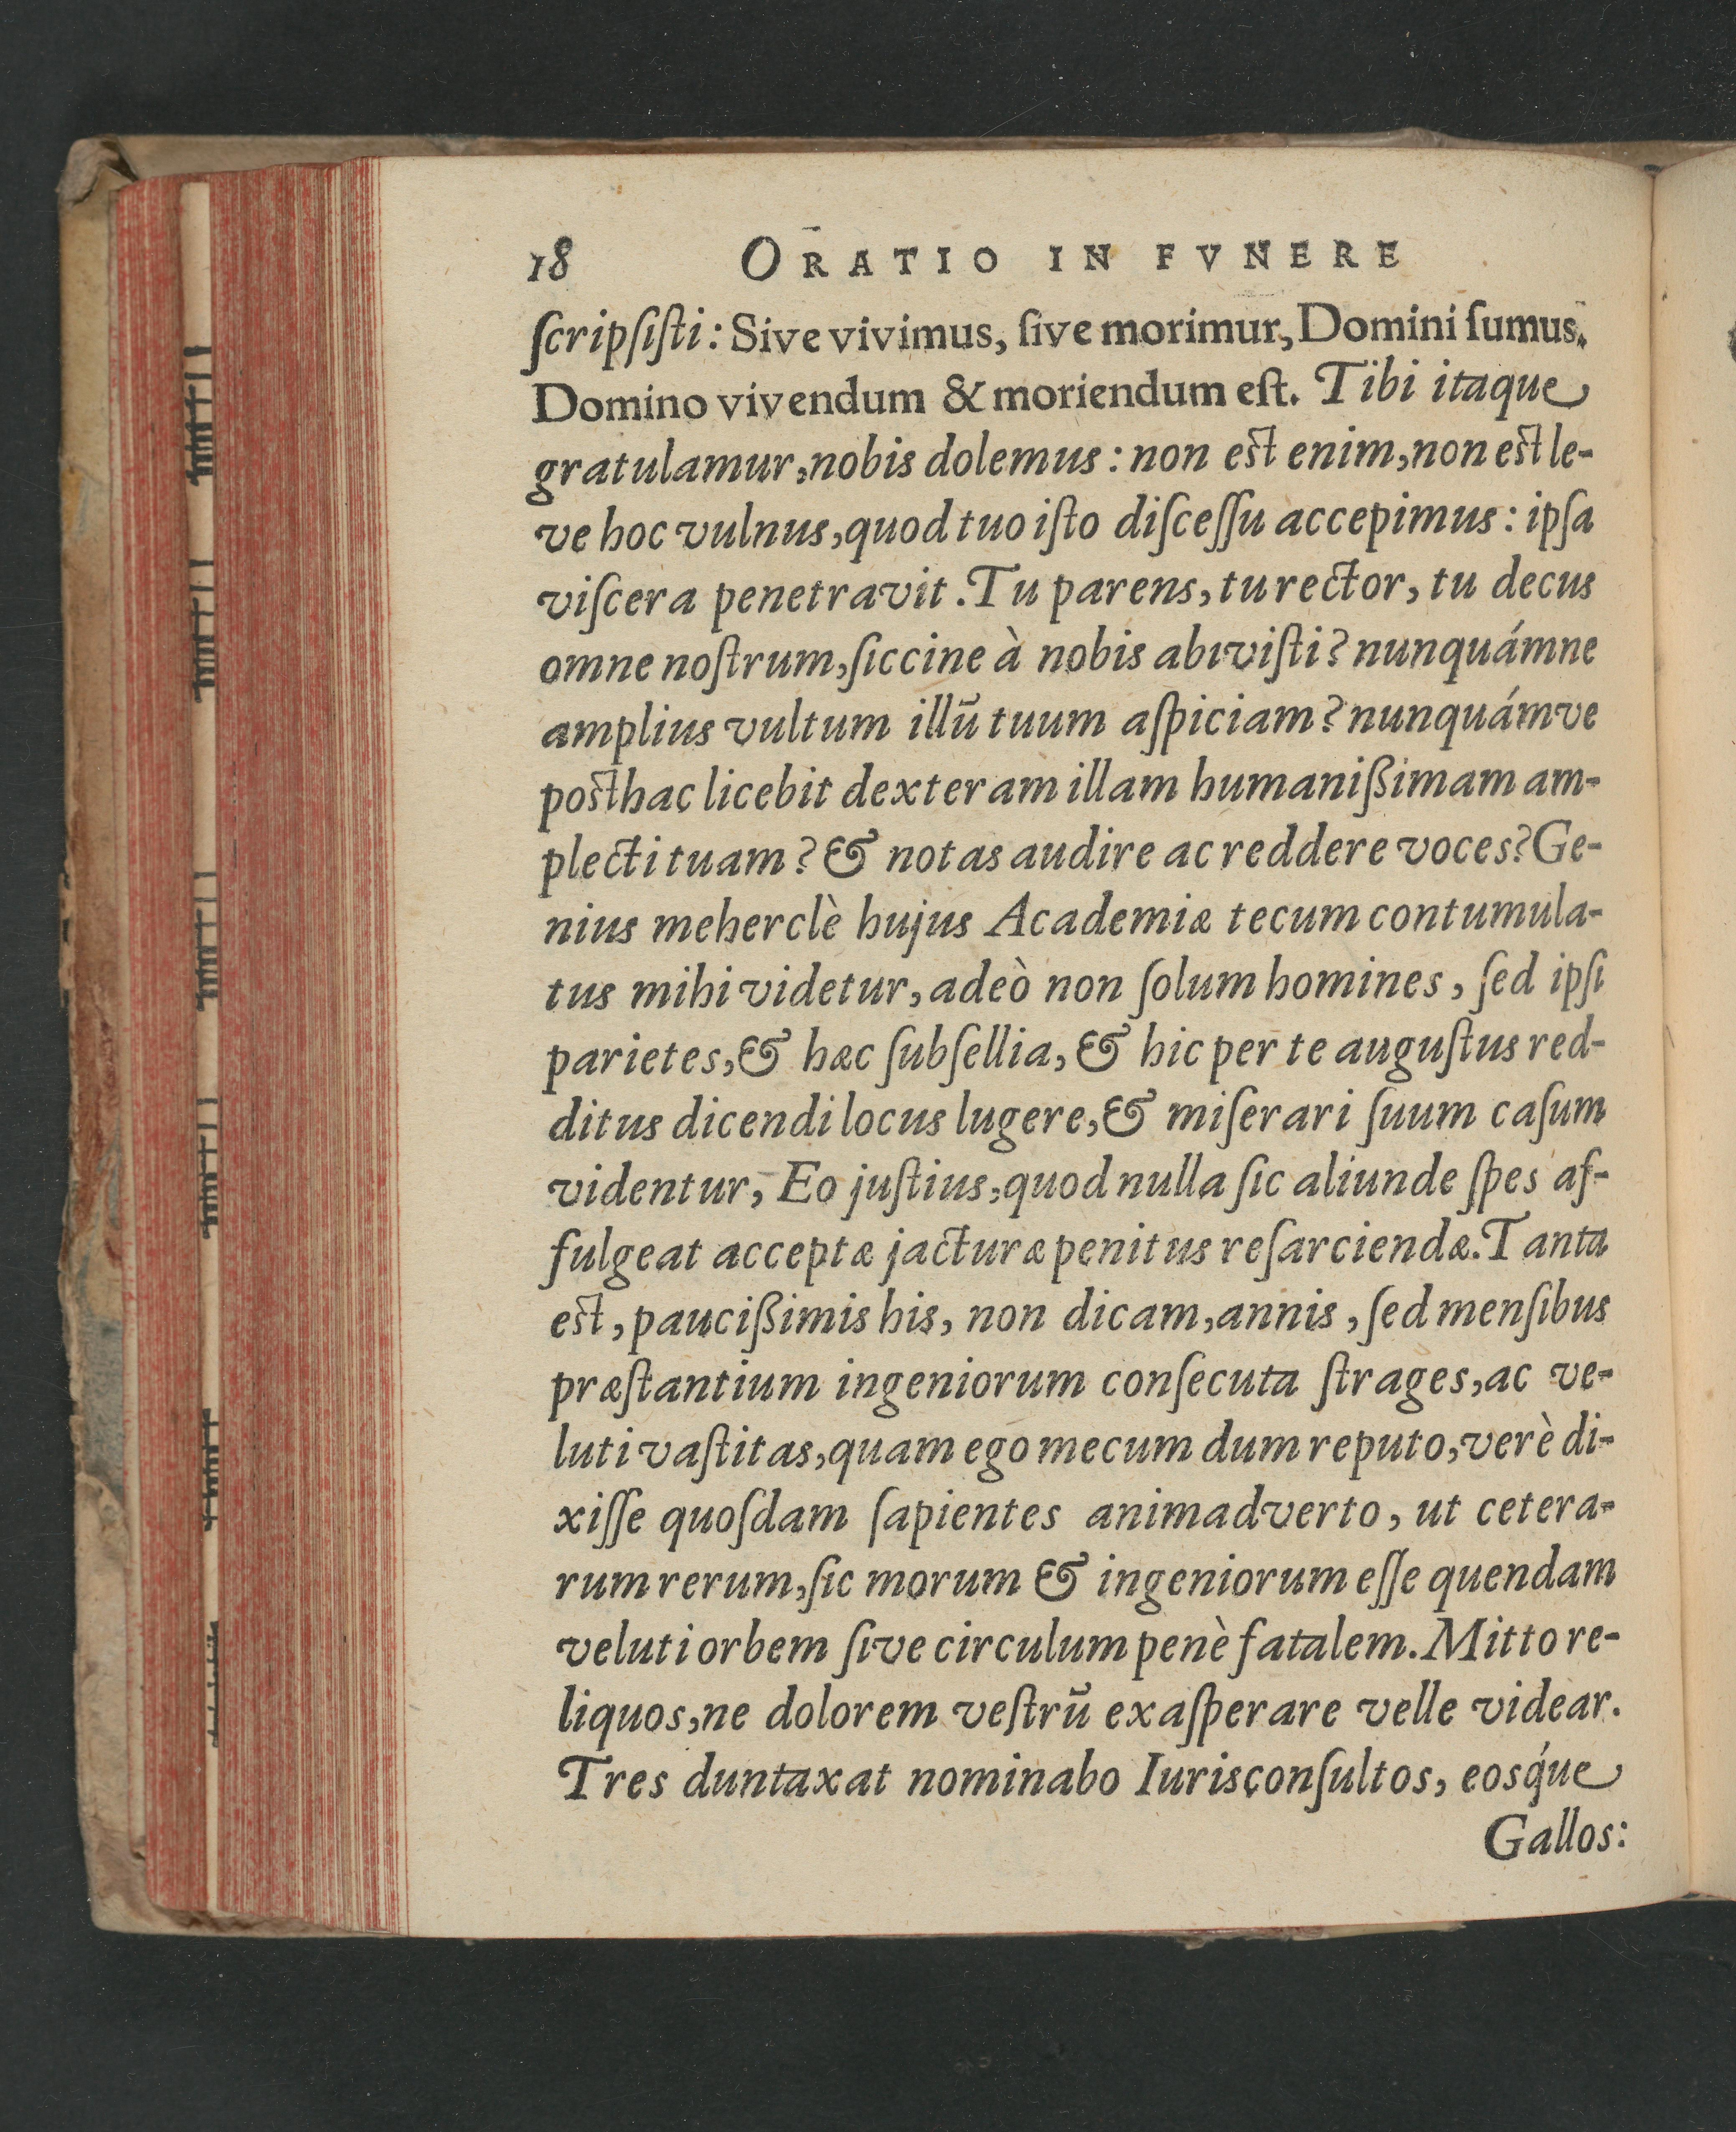 18 ORATIO IN FVNERE
ſcripſiſti: Sive vivimus, ſive morimur, Domini ſumus.
Domino vivendum & moriendum eſt. Tibi itaque
gratulamur, nobis dolemus: non eſt enim, non eſt le-
ve hoc vulnus, quod tuo iſto diſceſſu accepimus: ipſa
viſcera penetravit. Tu parens, tu rector, tu decus
omne noſtrum, ſiccine à nobis abıviſti? nunquámne
amplius vultum illū tuum aſpiciam? nunquámve
poſthac licebit dexteram illam humanißimam am-
plecti tuam? & notas audire ac reddere voces? Ge-
nius meherclè hujus Academiæ tecum contumula-
tus mihi videtur, adeò non ſolum homines, ſed ipſi
parietes, & hæc ſubſellia, & hic per te auguſtus red-
ditus dicendi locus lugere, & miſerari ſuum caſum
videntur, Eo juſtius, quod nulla ſic aliunde ſpes af-
fulgeat acceptæ jacturæ penitus reſarciendæ. Tanta
eſt, paucißimis his, non dicam, annis, ſed menſibus
præſtantium ingeniorum conſecuta ſtrages, ac ve-
luti vaſtitas, quam ego mecum dum reputo, verè di-
xiſſe quoſdam ſapientes animadverto, ut cetera-
rum rerum, ſic morum & ingeniorum eſſe quendam
veluti orbem ſive circulum penè fatalem. Mitto re-
liquos, ne dolorem veſtrū exaſperare velle videar.
Tres duntaxat nominabo Iurisçonſultos, eosq́ue
Gallos: